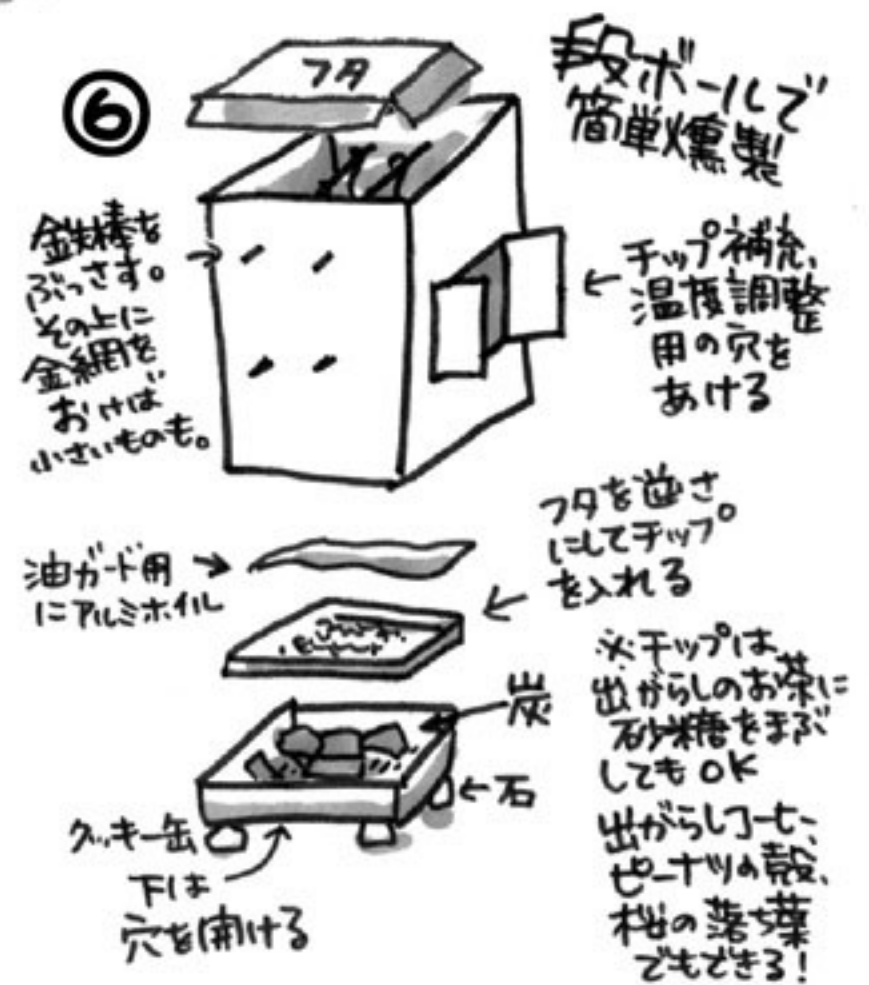 ⑥
段ボールで
簡単燻製
フタ
鉄棒を
ぶっさす。
その上に
金網を
おけば
小さいものも。
チップ補充、
温度調整
用の穴を
あける
油ガード用
にアルミホイル
フタを逆さ
にしてチップ
を入れる
炭
石
クッキー缶
下は
穴を開ける
※チップは
出がらしのお茶に
砂糖をまぶ
してもOK
出がらしコーヒー、
ピーナツの殻、
桜の落ち葉
でもできる!